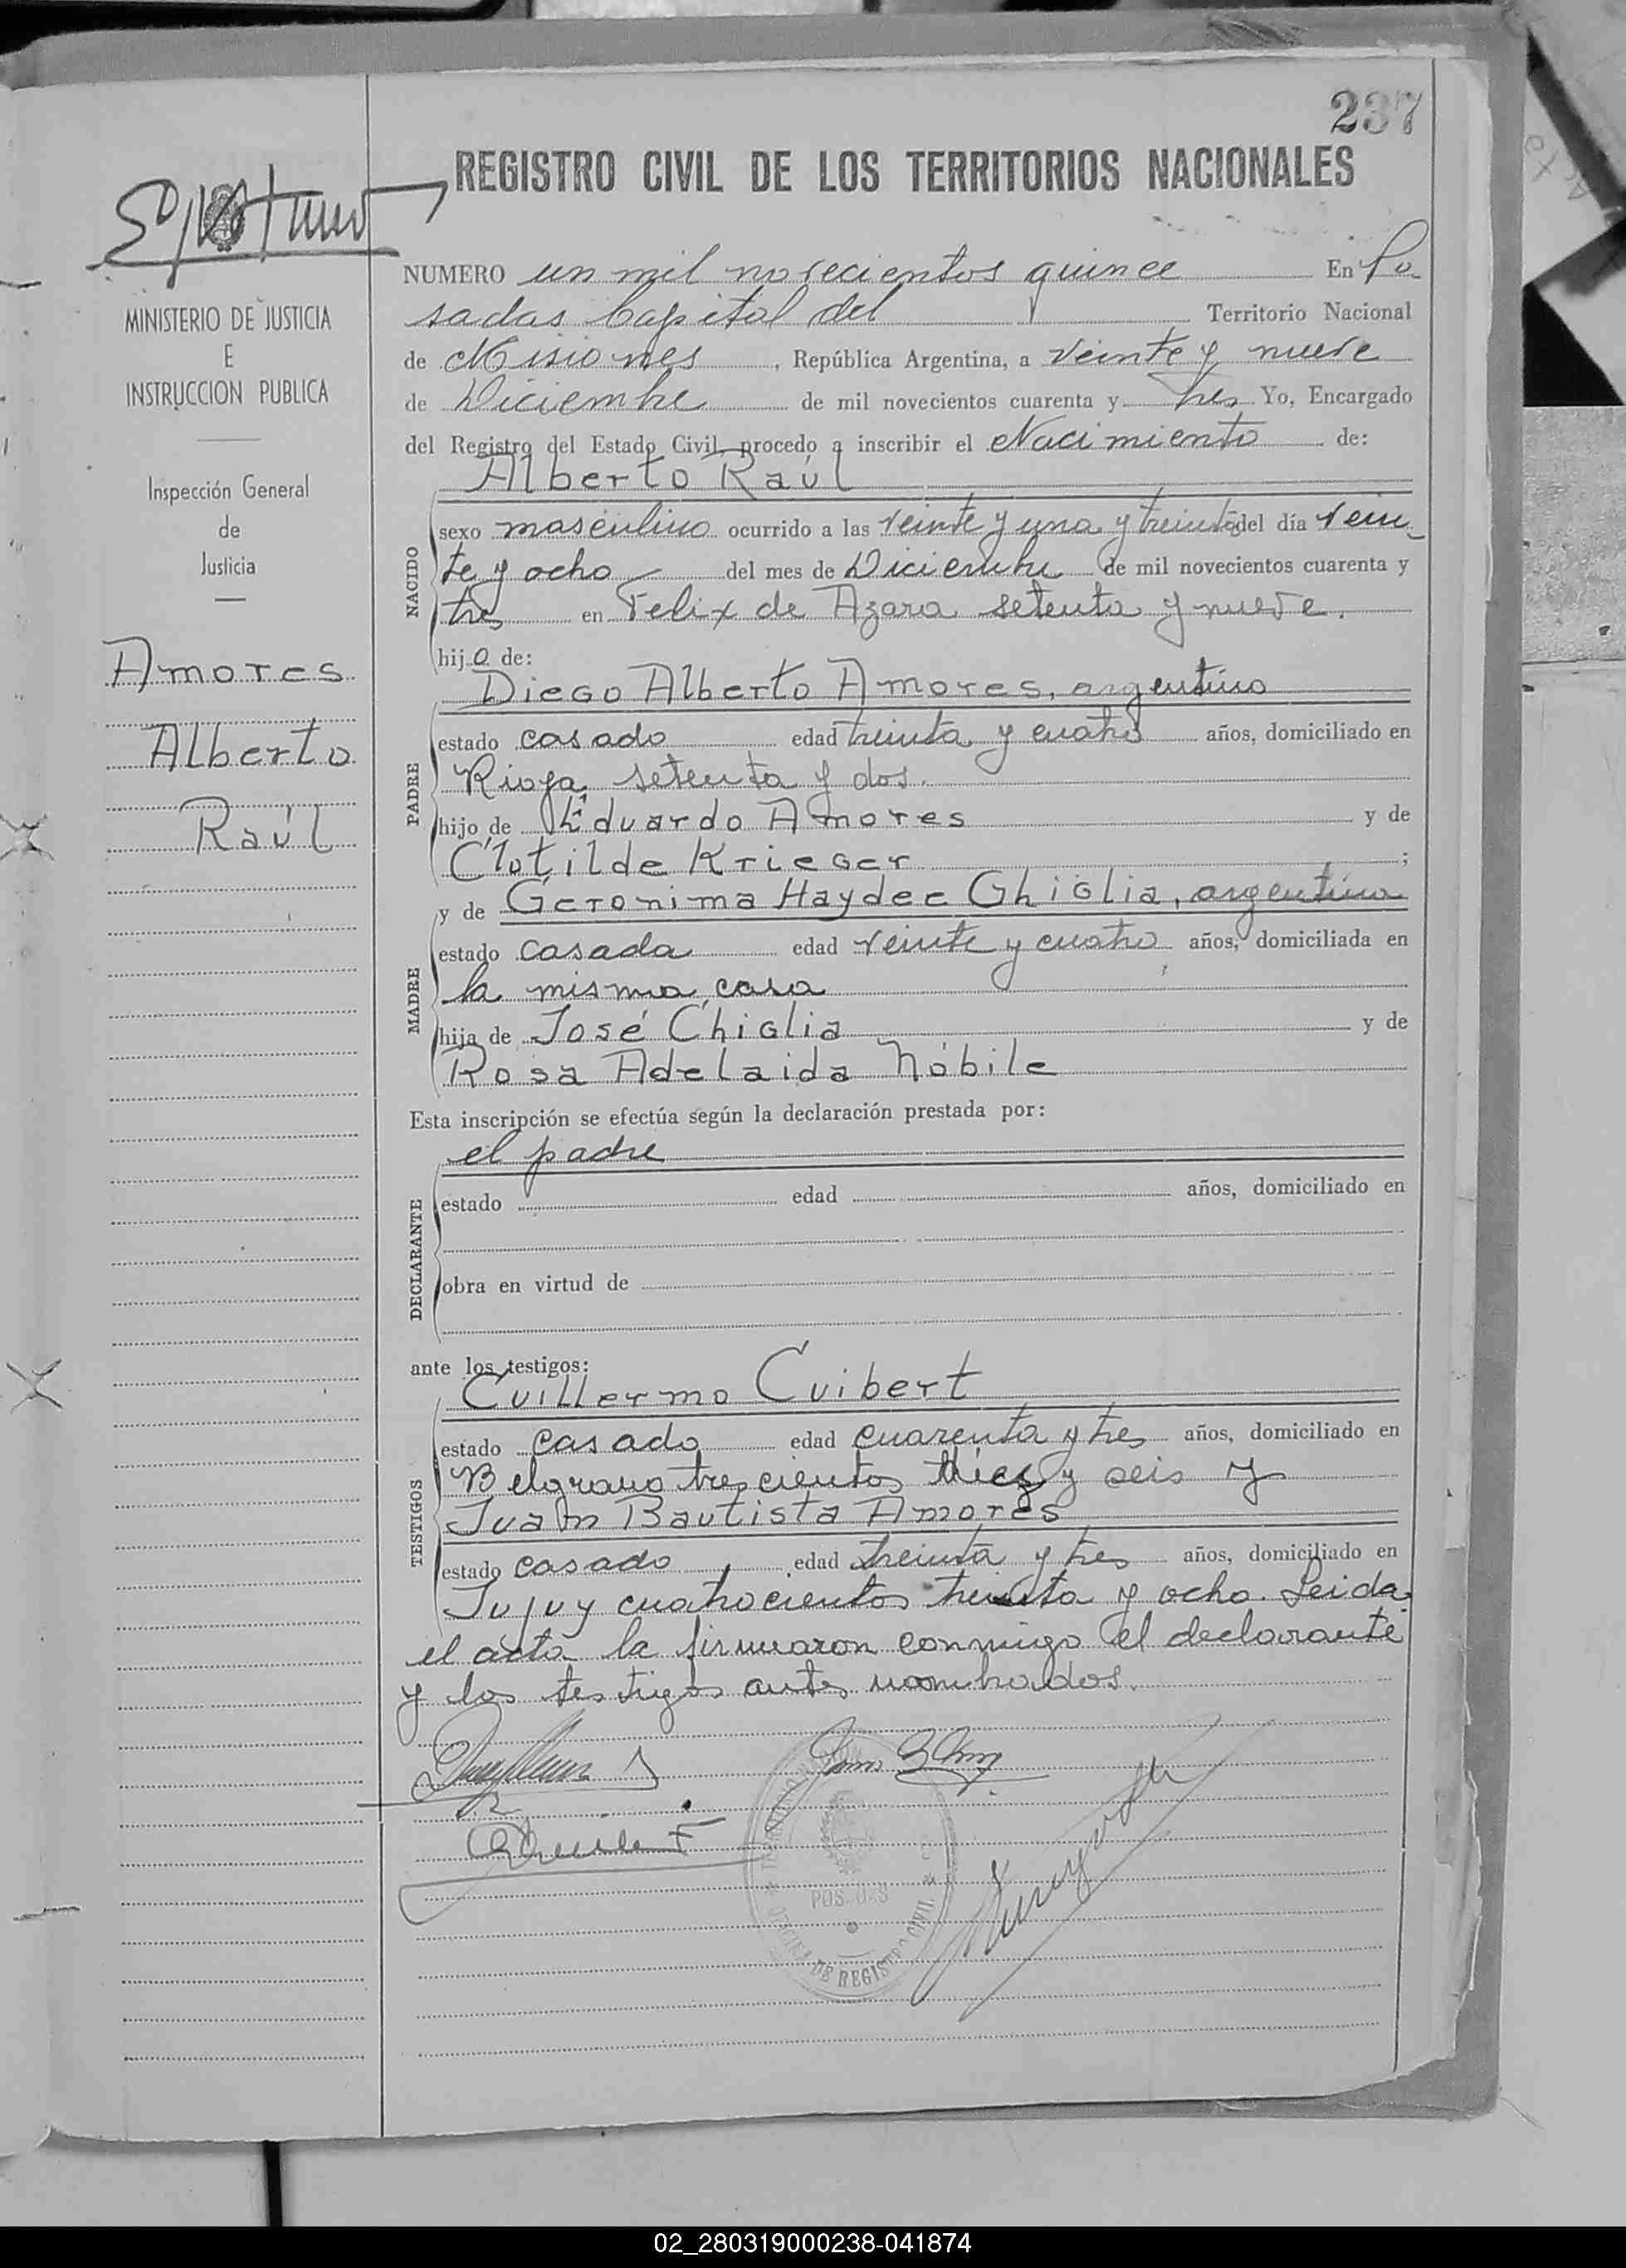 237
REGISTRO CIVIL DE LOS TERRITORIOS NACIONALES
MINISTERIO DE JUSTICIA
E
INSTRUCCION PUBLICA
Inspección General
de
Justicia
Amores
Alberto
Raúl
NUMERO un mil novecientos quince En Po-
sadas Capital del Territorio Nacional
de Misiones, República Argentina, a veinte y nueve
de Diciembre de mil novecientos cuarenta y tres Yo, Encargado
del Registro del Estado Civil, procedo a inscribir el Nacimiento de:
Alberto Raúl
NACIDO
sexo masculino ocurrido a las veinte y una y treinta del día vein-
te y ocho del mes de Diciembre de mil novecientos cuarenta y
tres en Felix de Azara setenta y nueve.
hijo de:
Diego Alberto Amores, argentino
PADRE
estado casado edad treinta y cuatro años, domiciliado en
Rioja setenta y dos.
hijo de Eduardo Amores y de
Clotilde Krieger;
y de Geronima Haydee Ghiglia, argentina
MADRE
estado casada edad veinte y cuatro años, domiciliada en
la misma casa
hija de José Chiglia y de
Rosa Adelaida Nóbile
Esta inscripción se efectúa según la declaración prestada por:
el padre
DECLARANTE
estado edad años, domiciliado en
obra en virtud de
ante los testigos:
Guillermo Guibert
TESTIGOS
estado casado edad cuarenta y tres años, domiciliado en
Belgrano trescientos diez y seis y
Juan Bautista Amores
estado casado edad treinta y tres años, domiciliado en
Jujuy cuatrocientos treinta y ocho. Leida
el acta la firmaron conmigo el declarante
y los testigos antes nombrados.
POSADAS
OFICINA DE REGISTRO CIVIL
02_280319000238-041874